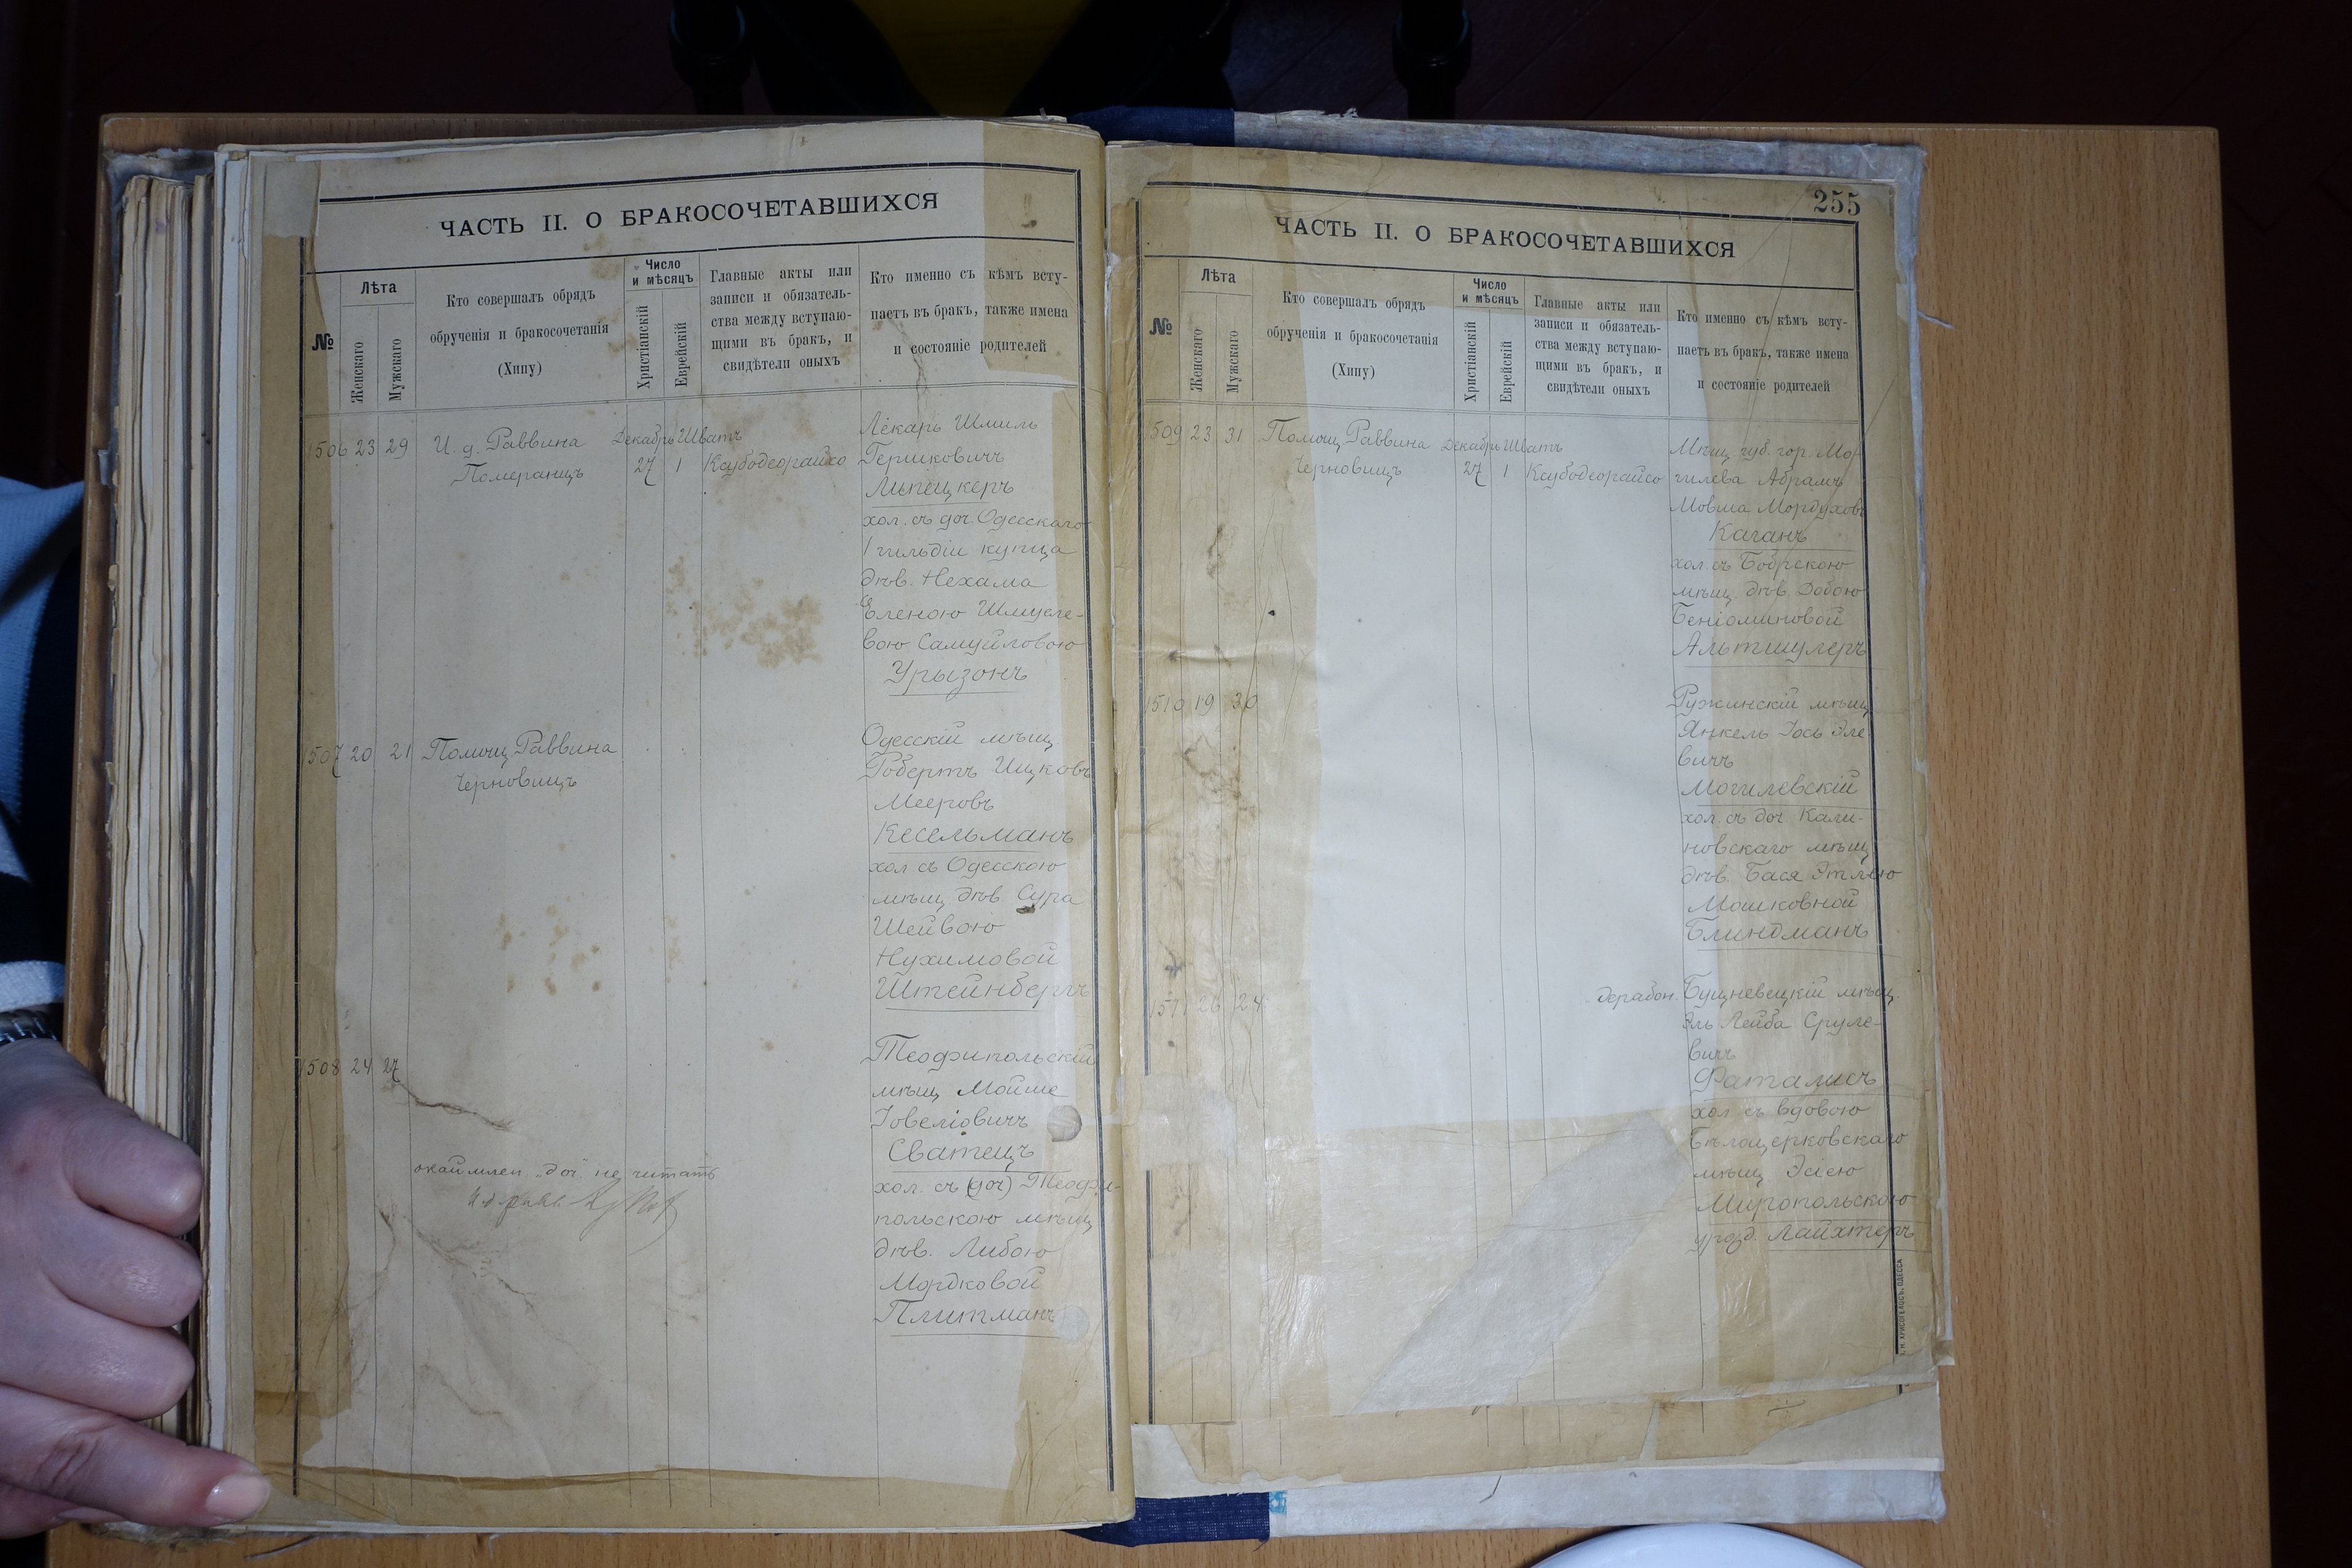 ЧАСТЬ II. О БРАКОСОЧЕТАВШИХСЯ
№
Лѣта
Женскаго
Мужскаго
Кто совершалъ обрядъ
обрученія и бракосочетанія
(Хипу)
Число
и мѣсяцъ
Христіанскій
Еврейскій
Главные акты или
записи и обязатель-
ства между вступаю-
щими въ бракъ, и
свидѣтели оныхъ
Кто именно съ кѣмъ всту-
паетъ въ бракъ, также имена
и состояніе родителей
1506 23 29 И. д. Раввина Декабрь Шватъ Лекарь Шмиль
Померанцъ 27 1 Ксубодеорайсо Гершковичъ
Липецкеръ
хол. съ доч. Одесскаго
1 гильдіи купца
дѣв. Нехама
Еленою Шмуле-
вою Самуйловою
Урызонъ
1507 20 21 Помощ. Раввина Одесскій мѣщ.
Черновицъ Робертъ Ицковъ
Мееровъ
Кесельманъ
хол. съ Одесскою
мѣщ. дѣв. Сура
Шейвою
Нухимовой
Штейнбергъ
1508 24 27 Теофипольскій
мѣщ. Мойше
Іовеліовичъ
Сватецъ
окаймлен. „доч“ не читать
хол. съ (доч) Теофи-
польскою мѣщ.
дѣв. Либою
Мордковой
Плитманъ
255
ЧАСТЬ II. О БРАКОСОЧЕТАВШИХСЯ
№
Лѣта
Женскаго
Мужскаго
Кто совершалъ обрядъ
обрученія и бракосочетанія
(Хипу)
Число
и мѣсяцъ
Христіанскій
Еврейскій
Главные акты или
записи и обязатель-
ства между вступаю-
щими въ бракъ, и
свидѣтели оныхъ
Кто именно съ кѣмъ всту-
паетъ въ бракъ, также имена
и состояніе родителей
1509 23 31 Помощ. Раввина Декабрь Шватъ Мѣщ. губ. гор. Мо-
Черновицъ 27 1 Ксубодеорайсо гилева Абрамъ
Мовша Мордуховъ
Каганъ
хол. съ Бобрскою
мѣщ. дѣв. Добою
Беніоминовой
Альтшулеръ
1510 19 30 Ружинскій мѣщ.
Янкель Іось Эле
вичъ
Могилевскій
хол. съ доч. Кали-
новскаго мѣщ.
дѣв. Бася Этлею
Мошковной
Блиндманъ
1511 26 24 Дерабон. Бущневецкій мѣщ.
Эль Лейба Сруле-
вичъ
Фаталисъ
хол. съ вдовою
Бѣлоцерковскаго
мѣщ. Эсіею
Миропольскою
урожд. Лайхтеръ